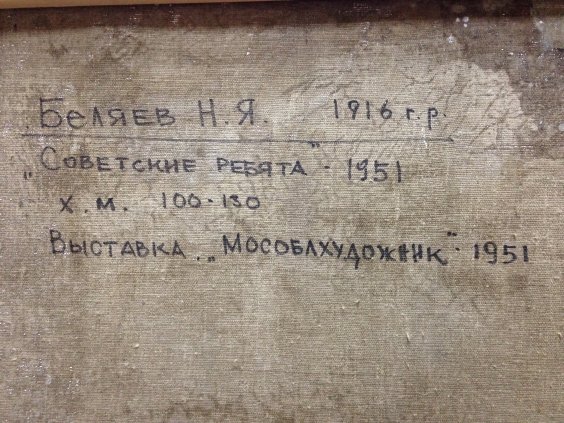 Беляев Н.Я. 1916 г.р.
„Советские ребята" - 1951
х.м. 100-130
Выставка „Мособлхудожник" - 1951